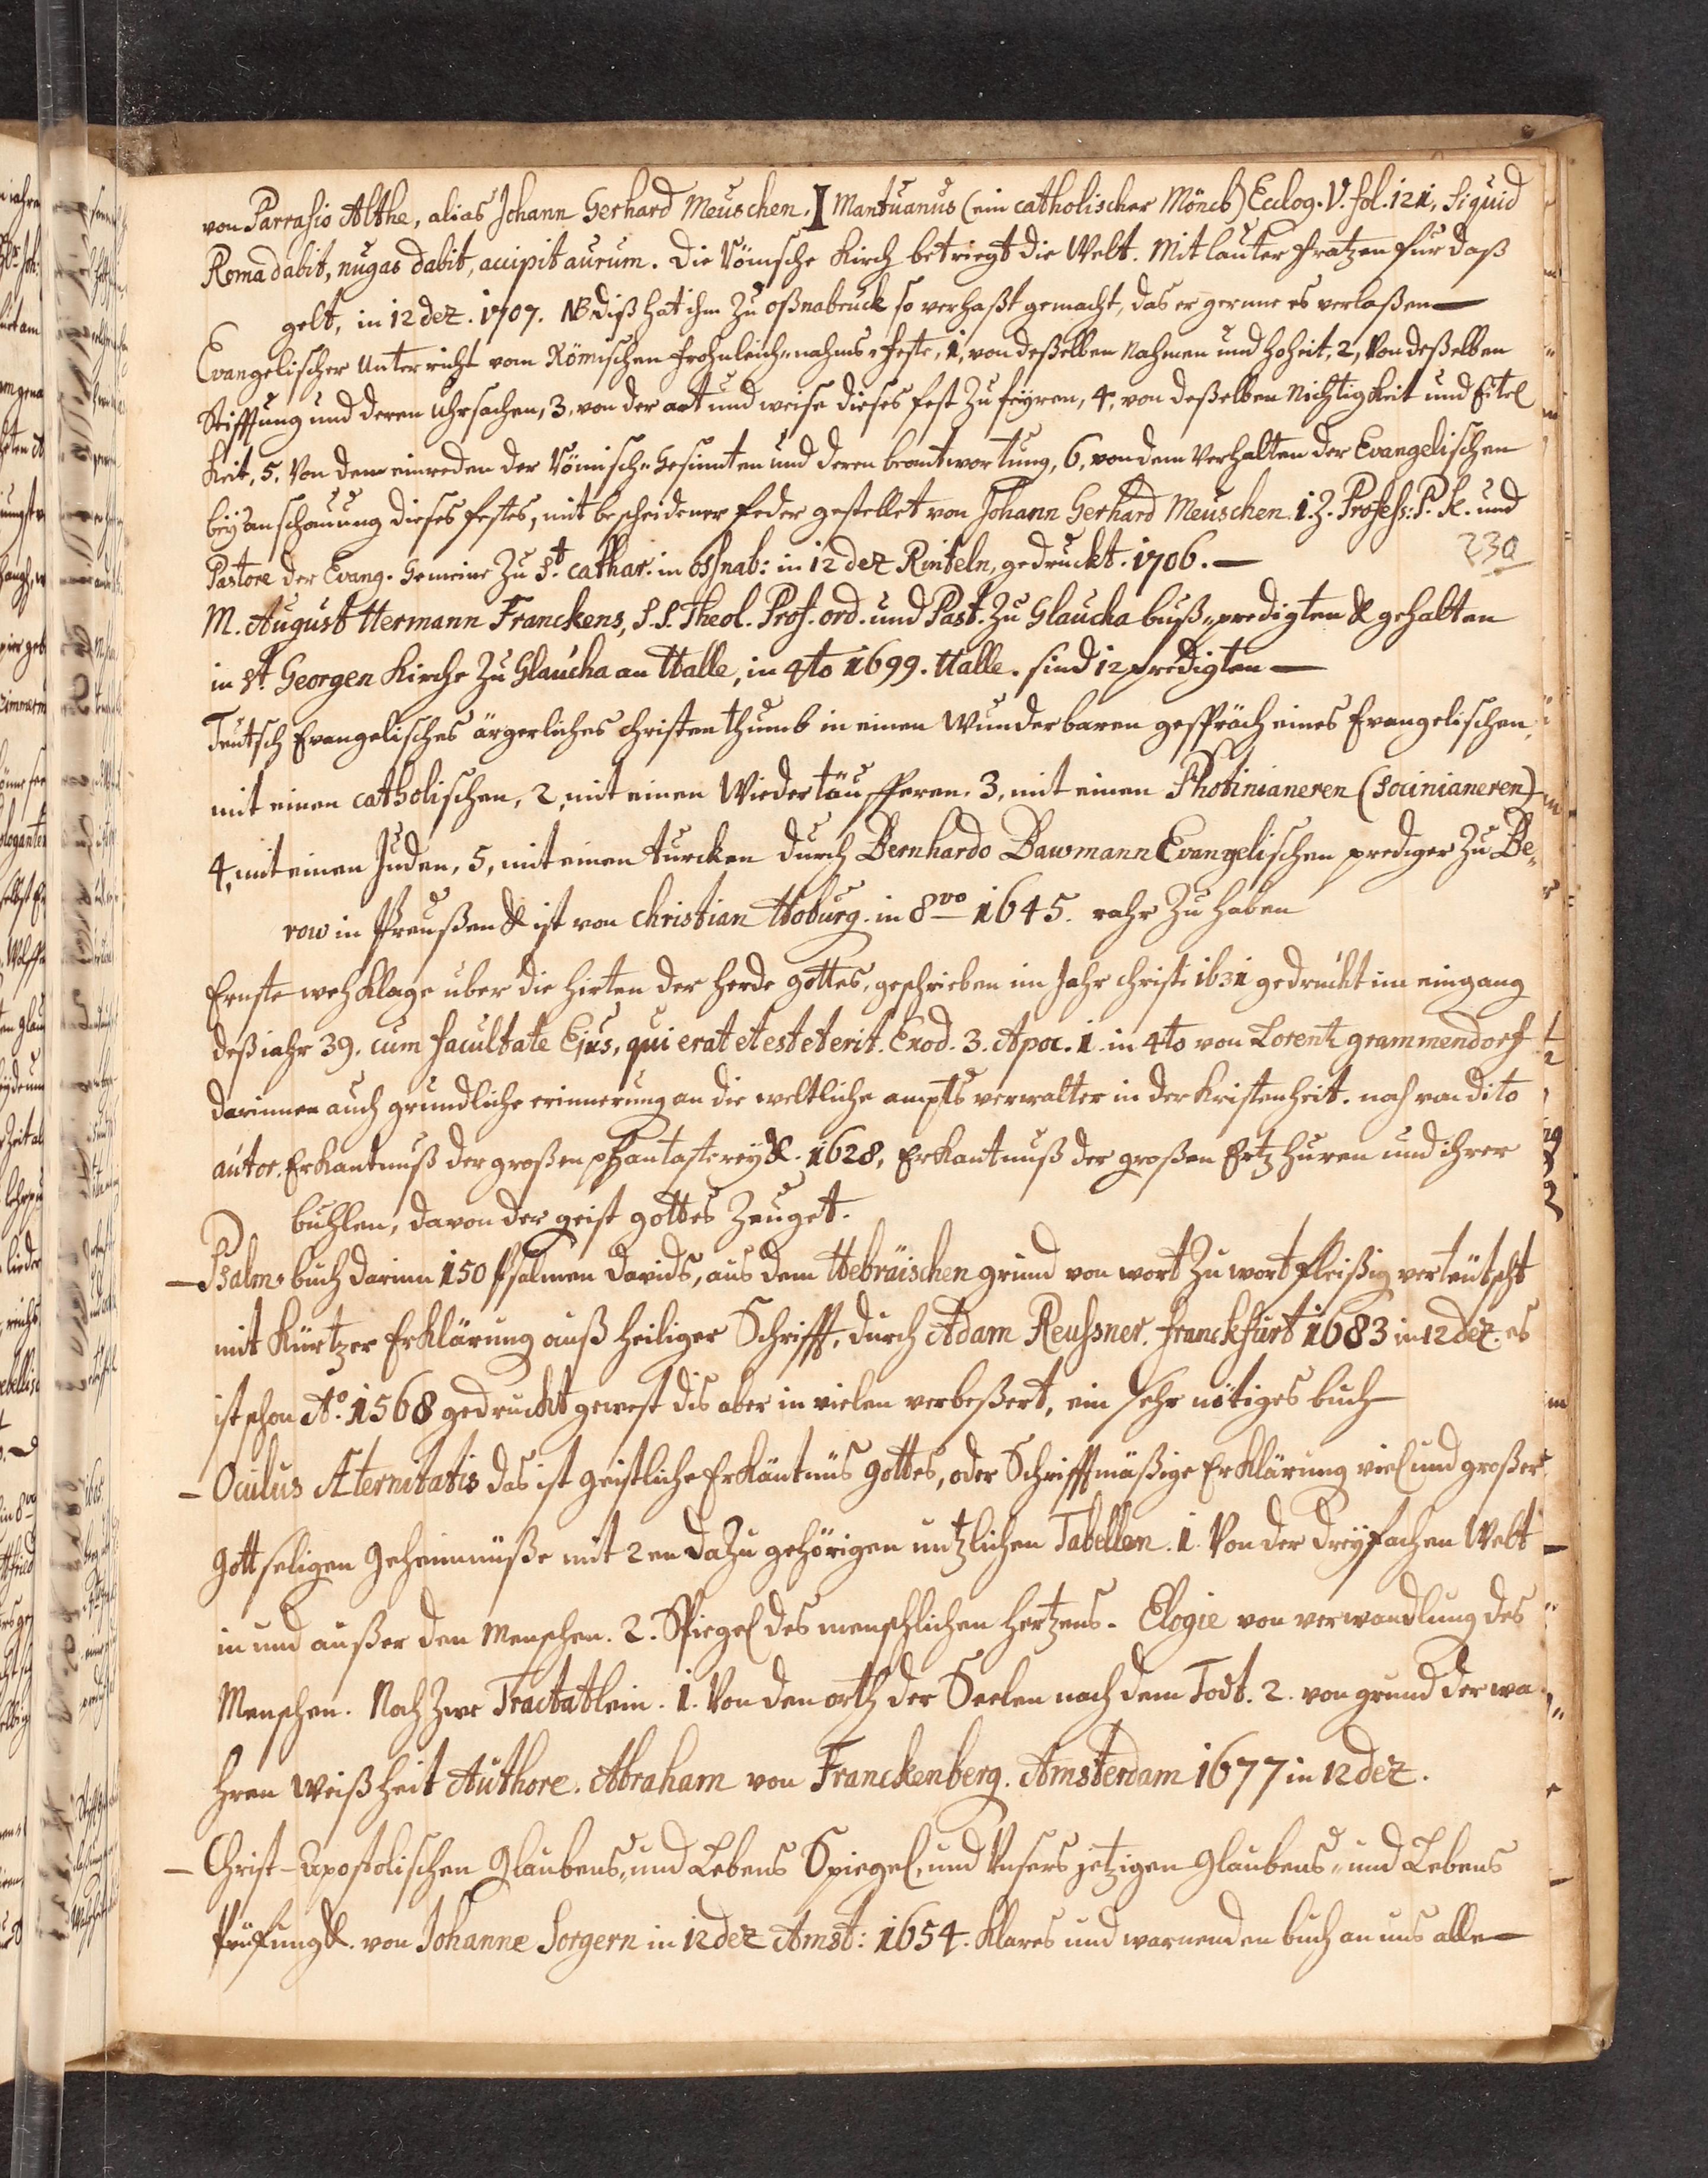 von Parrasio Althe, alias Johann Gerhard Meuschen. I Mantuanus (ein catholischer Mönch) Eclog. V. fol. 121, Siquid
Roma dabit, nugas dabit, accipit aurum. Die Römsche Kirch betriegt die Welt. Mit lauter fratzen fur daß
gelt, in 12dez. 1707. NB. diß hat ihm zu oßnabruck so verhaßt gemacht, das er gernne es verlaßen —
Evangelischer Unterricht vom Römischen frohnleichnahms-feste, 1, von deßelben Nahmen und hoheit, 2, Von deßelben
Stifftung und deren uhrsachen, 3, von der art und weise dieses fest zu feÿren, 4, von deßelben Nichtigkeit und Eitel
keit, 5, Von dem einreden der Römisch-Gesinten und deren beantwortung, 6, von dem Verhalten der Evangelischen
beÿ anschauung dieses festes, mit bescheidener feder gestellet von Johann Gerhard Meuschen. i. Z. Profess: P. K. und
Pastore der Evang. Gemeine zu St. cathar. in oßnab: in 12dez Rinteln, gedruckt. 1706. —
230
M. August Hermann Franckens, S. S. Theol. Prof. ord. und Past. zu Glaucha buß-predigten &. gehalten
in St. Georgen Kirche zu Glaucha an Halle, in 4to 1699. Halle. sind 12 predigten —
Teutsch Evangelisches ärgerliches christenthumb in einen Wunderbaren gespräch eines Evangelischen,
mit einen catholischen, 2, mit einen Wiedertäufferen. 3, mit einen Photinianeren (socinianeren)
4, mit einen Juden, 5, mit einen turcken durch Bernhardo Bawmann Evangelischen prediger zu Be-
row in Preußen &. ist von christian Hoburg. in 8vo 1645. rahr zu haben
Ernste wehklage uber die hirten der herde gottes, geschrieben im Jahr christi 1631 gedruckt im eingang
deß iahr 39. cum facultate Ejus, qui erat et est et erit. Exod. 3. Apoc. 1. in 4to von Lorentz grammendorf
darinnen auch grundliche erinnerung an die weltliche ampts verwalter in der Kristenheit. noch von dito
autor. Erkantnuß der großen phantasterey &. 1628, Erkantnuß der großen Ertzhuren und ihrer
buhlen, davon der geist gottes zeuget.
— Psalm-buch darinn 150 Psalmen Davids, aus dem Hebräischen grund von wort zu wort fleißig verteutscht
mit kurtzer Erklärung auß heiliger Schrifft, durch Adam Reussner. franckfurt 1683 in 12dez. es
ist schon Ao. 1568 gedruckt gewest dis aber in vielen verbeßert, ein sehr nötiges buch
— Oculus Æternitatis das ist geistliche Erkäntnüs Gottes, oder Schrifftmäßige Erklärung viel und großer
Gottseligen Geheimnüße mit 2en dazu gehörigen nutzlichen Tabellen. 1. Von der dreÿfachen Welt
in und außer den Menschen. 2. Spiegel des menschlichen Hertzens. Elogie von verwandlung des
Menschen. Noch zwe Tractatlein. 1. Von den orth der Seelen nach dem Todt. 2. von grund der wa
hren Weißheit Authore. Abraham von Franckenberg. Amsterdam 1677 in 12dez.
— Christ-Apostolischen Glaubens-und Lebens Spiegel, und Unsers jetzigen Glaubens-und Lebens
Prüfung &. von Johanne Sorgern in 12dez Amst: 1654. klares und warnenden buch an uns alle —